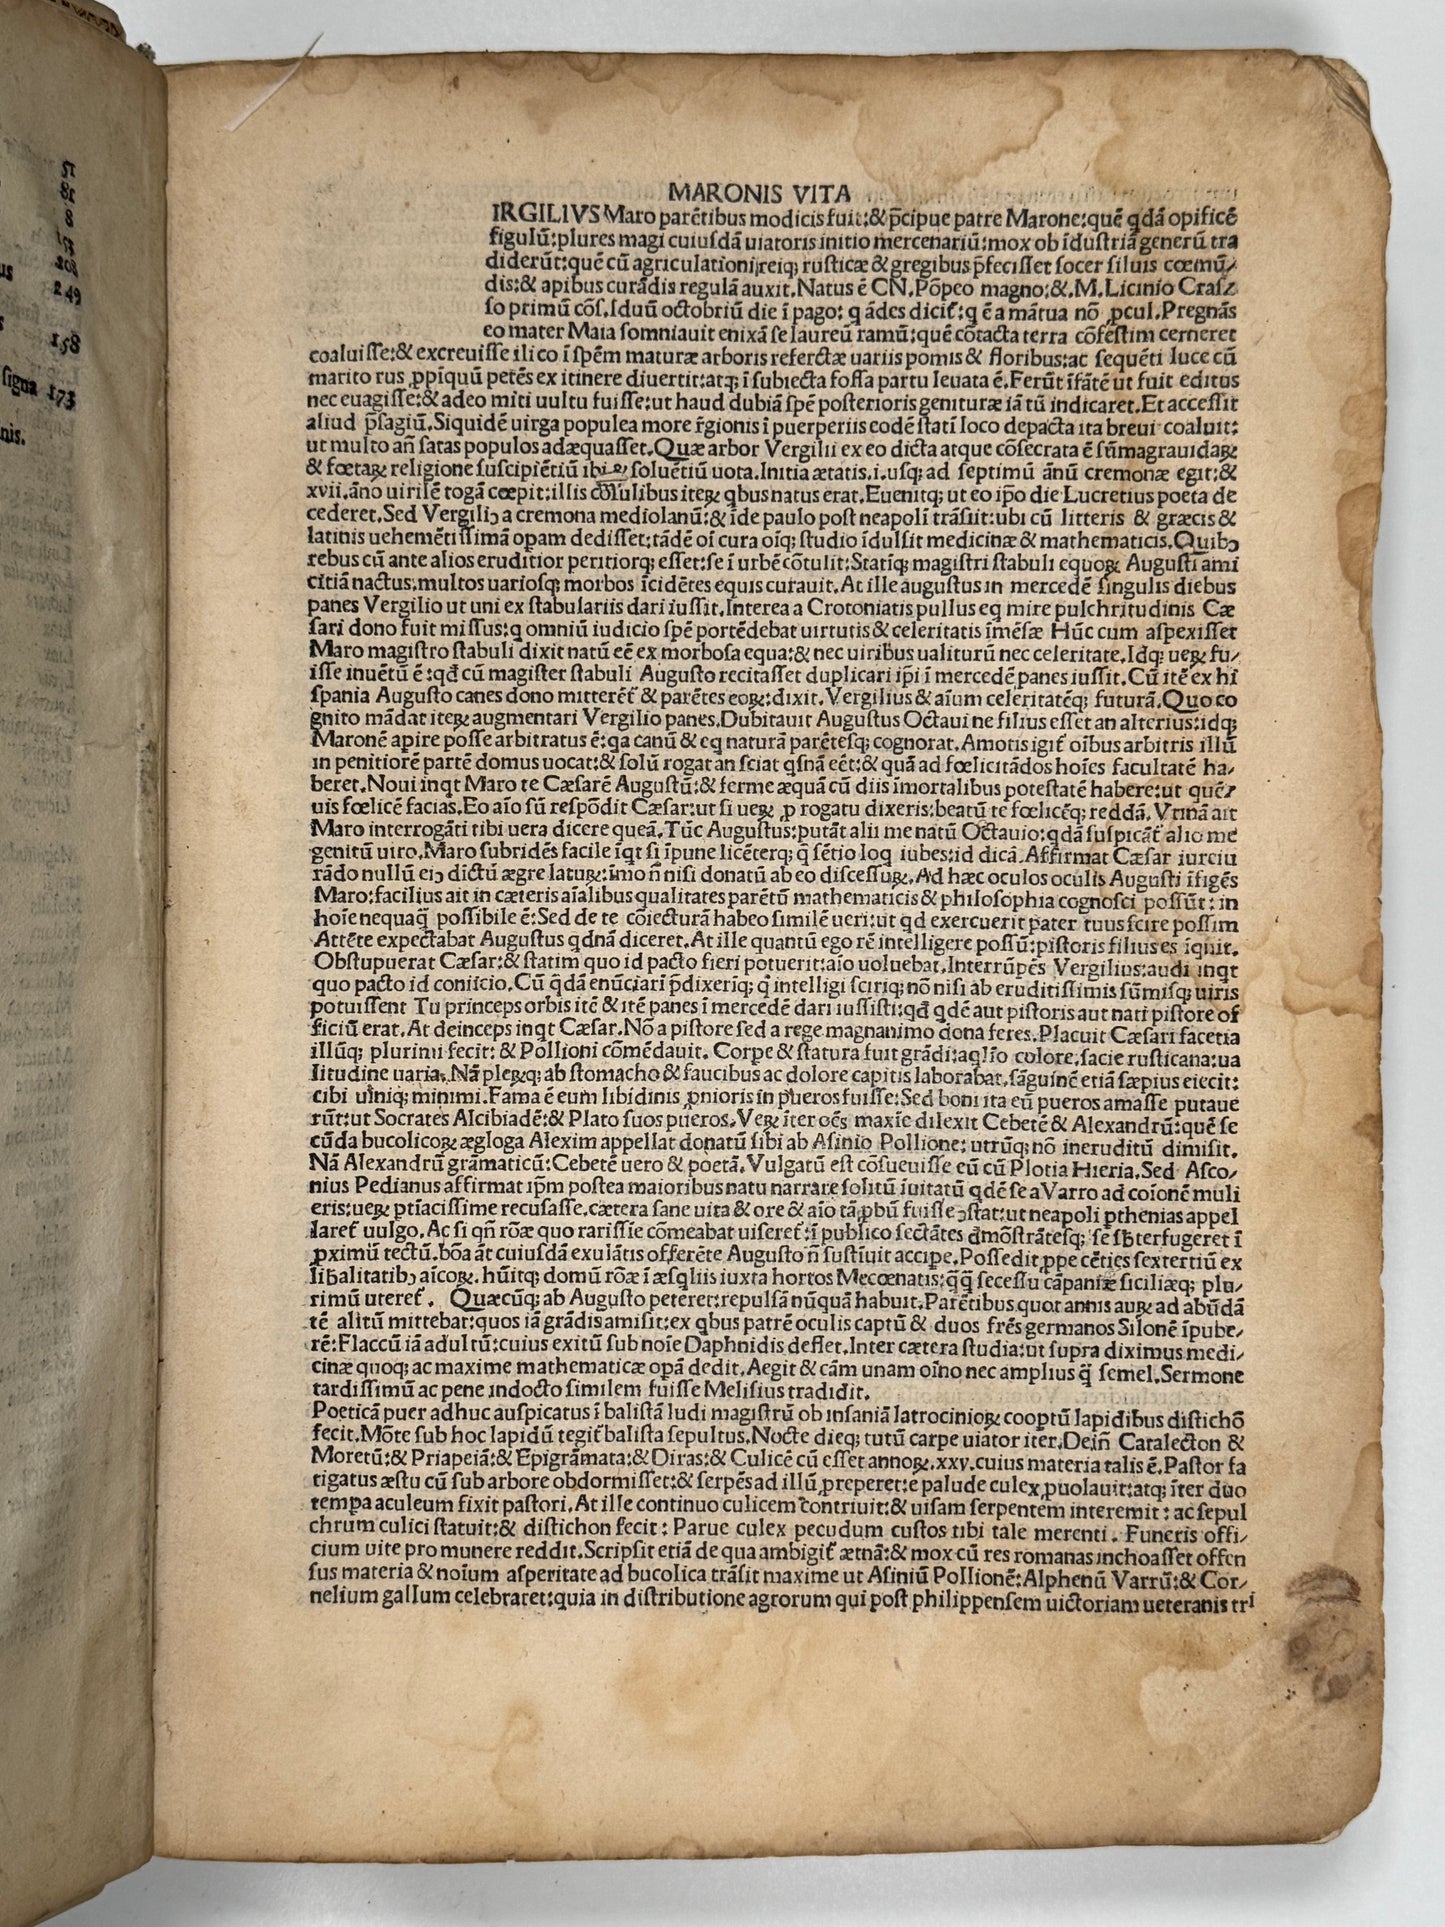 51
81
8
153
us 208
249
s
158
signa 173
nis.
MARONIS VITA
IRGILIVS Maro parẽtibus modicis fuit:& p̃cipue patre Marone:quẽ qdã opificẽ
figulũ:plures magi cuiusdã uiatoris initio mercenariũ:mox ob ĩdustriã generũ tra
diderũt:quẽ cũ agriculationi,reiq; rusticæ & gregibus p̃fecisset socer siluis cœmũ/
dis:& apibus curãdis regulã auxit.Natus ẽ CN.Põpeo magno:&.M.Licinio Cras/
so primũ cõs.Iduũ octobriũ die ĩ pago: q ãdes dicit᷑:q ẽ a mãtua nõ ꝓcul.Pregnãs
eo mater Maia somniauit enixã se laureũ ramũ:quẽ cõtacta terra cõfestim cerneret
coaluisse:& excreuisse ilico ĩ spẽm maturæ arboris refertæ uariis pomis & floribus:ac sequẽti luce cũ
marito rus ꝓpĩquũ petẽs ex itinere diuertit:atq; ĩ subiecta fossa partu leuata ẽ.Ferũt ĩfãtẽ ut fuit editus
nec euagisse:& adeo miti uultu fuisse:ut haud dubiã spẽ posterioris genituræ iã tũ indicaret.Et accessit
aliud p̃sagiũ.Siquidẽ uirga populea more r̃gionis ĩ puerperiis eodẽ statĩ loco depacta ita breui coaluit:
ut multo añ satas populos adæquasset.Quæ arbor Vergilii ex eo dicta atque cõsecrata ẽ sũmagrauidaꝝ
& fœtaꝝ religione suscipiẽtiũ ibi & soluẽtiũ uota.Initia ætatis.i.usq; ad septimũ ãnũ cremonæ egit:&
xvii.ãno uirilẽ togã cœpit:illis cõsulibus iteꝝ qbus natus erat.Euenitq; ut eo ip̃o die Lucretius poeta de
cederet.Sed Vergiliꝰ a cremona mediolanũ:& ĩde paulo post neapolĩ trãsiit:ubi cũ litteris & græcis &
latinis uehemẽtissimã opam dedisset:tãdẽ oĩ cura oĩq; studio ĩdulsit medicinæ & mathematicis.Quibꝰ
rebus cũ ante alios eruditior peritiorq; esset:se ĩ urbẽ cõtulit:Statĩq; magistri stabuli equoꝝ Augusti ami
citiã nactus:multos uariosq; morbos ĩcidẽtes equis curauit.At ille augustus in mercedẽ singulis diebus
panes Vergilio ut uni ex stabulariis dari iussit.Interea a Crotoniatis pullus eq mire pulchritudinis Cæ
sari dono fuit missus:q omniũ iudicio spẽ portẽdebat uirtutis & celeritatis ĩmẽsæ Hũc cum aspexisset
Maro magistro stabuli dixit natũ eẽ ex morbosa equa:& nec uiribus ualiturũ nec celeritate.Idq; ueꝝ fu/
isse inuẽtũ ẽ:qđ cũ magister stabuli Augusto recitasset duplicari ip̃i ĩ mercedẽ panes iussit.Cũ itẽ ex hi
spania Augusto canes dono mitterẽt᷑ & parẽtes eoꝝ:dixit.Vergilius & aĩum celeritatẽq; futurã.Quo co
gnito mãdat iteꝝ augmentari Vergilio panes.Dubitauit Augustus Octaui ne filius esset an alterius:idq;
Maronẽ apire posse arbitratus ẽ:qa canũ & eq naturã parẽtesq; cognorat.Amotis igit᷑ oĩbus arbitris illũ
in penitiorẽ partẽ domus uocat:& solũ rogat an sciat qsnã eẽt:& quã ad fœlicitãdos hoĩes facultatẽ ha/
beret.Noui inqt Maro te Cæsarẽ Augustũ:& ferme æquã cũ diis ĩmortalibus potestatẽ habere:ut quẽ/
uis fœlicẽ facias.Eo aĩo sũ respõdit Cæsar:ut si ueꝝ ꝓ rogatu dixeris:beatũ te fœlicẽq; reddã.Vtinã ait
Maro interrogãti tibi uera dicere queã.Tũc Augustus:putãt alii me natũ Octauio:qdã suspicãt᷑ alio me
genitũ uiro.Maro subridẽs facile ĩqt si ĩpune licẽterq; q̃ sẽtio loq iubes:id dicã.Affirmat Cæsar iureiu
rãdo nullũ eiꝰ dictũ ægre latuꝝ:ĩmo ñ nisi donatũ ab eo discessuꝝ.Ad hæc oculos oculis Augusti ĩfigẽs
Maro:facilius ait in cæteris aĩalibus qualitates parẽtũ mathematicis & philosophia cognosci possũt: in
hoĩe nequaq̃ possibile ẽ:Sed de te cõiecturã habeo similẽ ueri:ut qd exercuerit pater tuus scire possim
Attẽte expectabat Augustus qdnã diceret.At ille quantũ ego rẽ intelligere possũ:pistoris filius es ĩquit.
Obstupuerat Cæsar:& statim quo id pacto fieri potuerit:aĩo uoluebat.Interrũpẽs Vergilius:audi inqt
quo pacto id coniicio.Cũ q̃dã enũciarĩ p̃dixeriq; q̃ intelligi sciriq; nõ nisi ab eruditissimis sũmisq; uiris
potuissent Tu princeps orbis itẽ & itẽ panes ĩ mercedẽ dari iussisti:qđ qdẽ aut pistoris aut nati pistore of
ficiũ erat.At deinceps inqt Cæsar.Nõ a pistore sed a rege magnanimo dona feres.Placuit Cæsari facetia
illũq; plurimi fecit: & Pollioni cõmẽdauit. Corpe & statura fuit grãdi:aqlĩo colore.facie rusticana:ua
litudine uaria.Nã pleꝝq; ab stomacho & faucibus ac dolore capitis laborabat.sãguinẽ etiã sæpius eiecit:
cibi uĩniq; minimi.Fama ẽ eum libidinis ꝓnioris in pueros fuisse:Sed boni ita eũ pueros amasse putaue
rũt:ut Socrates Alcibiadẽ:& Plato suos pueros.Veꝝ ĩter oẽs maxĩe dilexit Cebetẽ & Alexandrũ:quẽ se
cũda bucolicoꝝ ægloga Alexim appellat donatũ sibi ab Asinio Pollione: utrũq; nõ ineruditũ dimisit.
Nã Alexandrũ grãmaticũ:Cebetẽ uero & poetã.Vulgatũ est cõsueuisse eũ cũ Plotia Hieria.Sed Asco/
nius Pedianus affirmat ip̃m postea maioribus natu narrare solitũ ĩuitatũ qdẽ se a Varro ad coĩonẽ muli
eris:ueꝝ ptĩacissime recusasse.cætera sane uita & ore & aĩo tã ꝓbũ fuisse ꝯstat:ut neapoli pthenias appel
laret᷑ uulgo.Ac si qñ rõæ quo rarissĩe cõmeabat uiseret᷑:ĩ publico sectãtes đmõstrãtesq; se sƀterfugeret ĩ
ꝓximũ tectũ.bõa ãt cuiusdã exulãtis offerẽte Augusto ñ sustĩuit accipe.Possedit ꝓpe cẽties sextertiũ ex
liƀalitatibꝰ aĩcoꝝ.hũitq; domũ rõæ ĩ æsqliis iuxta hortos Mecœnatis:q̃q̃ secessu cãpaniæ siciliæq; plu/
rimũ uteret᷑. Quæcũq; ab Augusto peteret:repulsã nũquã habuit.Parẽtibus quot annis auꝝ ad abũdã
tẽ alitũ mittebat:quos iã grãdis amisit:ex qbus patrẽ oculis captũ & duos frẽs germanos Silonẽ ĩpube/
rẽ:Flaccũ iã adultũ:cuius exitũ sub noĩe Daphnidis deflet.Inter cætera studia:ut supra diximus medi/
cinæ quoq; ac maxime mathematicæ opã dedit.Aegit & cãm unam oĩno nec amplius q̃ semel.Sermone
tardissimũ ac pene indocto similem fuisse Melisius tradidit.
Poeticã puer adhuc auspicatus ĩ balistã ludi magistrũ ob insaniã latrocinioꝝ cooptũ lapidibus distichõ
fecit.Mõte sub hoc lapidũ tegit᷑ balista sepultus.Nocte dieq; tutũ carpe uiator iter.Deiñ Catalecton &
Moretũ:& Priapeiã:& Epigrãmata:& Diras:& Culicẽ cũ esset annoꝝ.xxv.cuius materia talis ẽ.Pastor fa
tigatus æstu cũ sub arbore obdormisset:& serpẽs ad illũ ꝓreperet:e palude culex ꝓuolauit:atq; ĩter duo
tempa aculeum fixit pastori.At ille continuo culicem contriuit:& uisam serpentem interemit: ac sepul
chrum culici statuit:& distichon fecit: Parue culex pecudum custos tibi tale merenti. Funeris offi/
cium uite pro munere reddit.Scripsit etiã de qua ambigit᷑ ætnã:& mox cũ res romanas inchoasset offen
sus materia & noĩum asperitate ad bucolica trãsit maxime ut Asiniũ Pollionẽ:Alphenũ Varrũ:& Cor/
nelium gallum celebraret:quia in distributione agrorum qui post philippensem uictoriam ueteranis tri